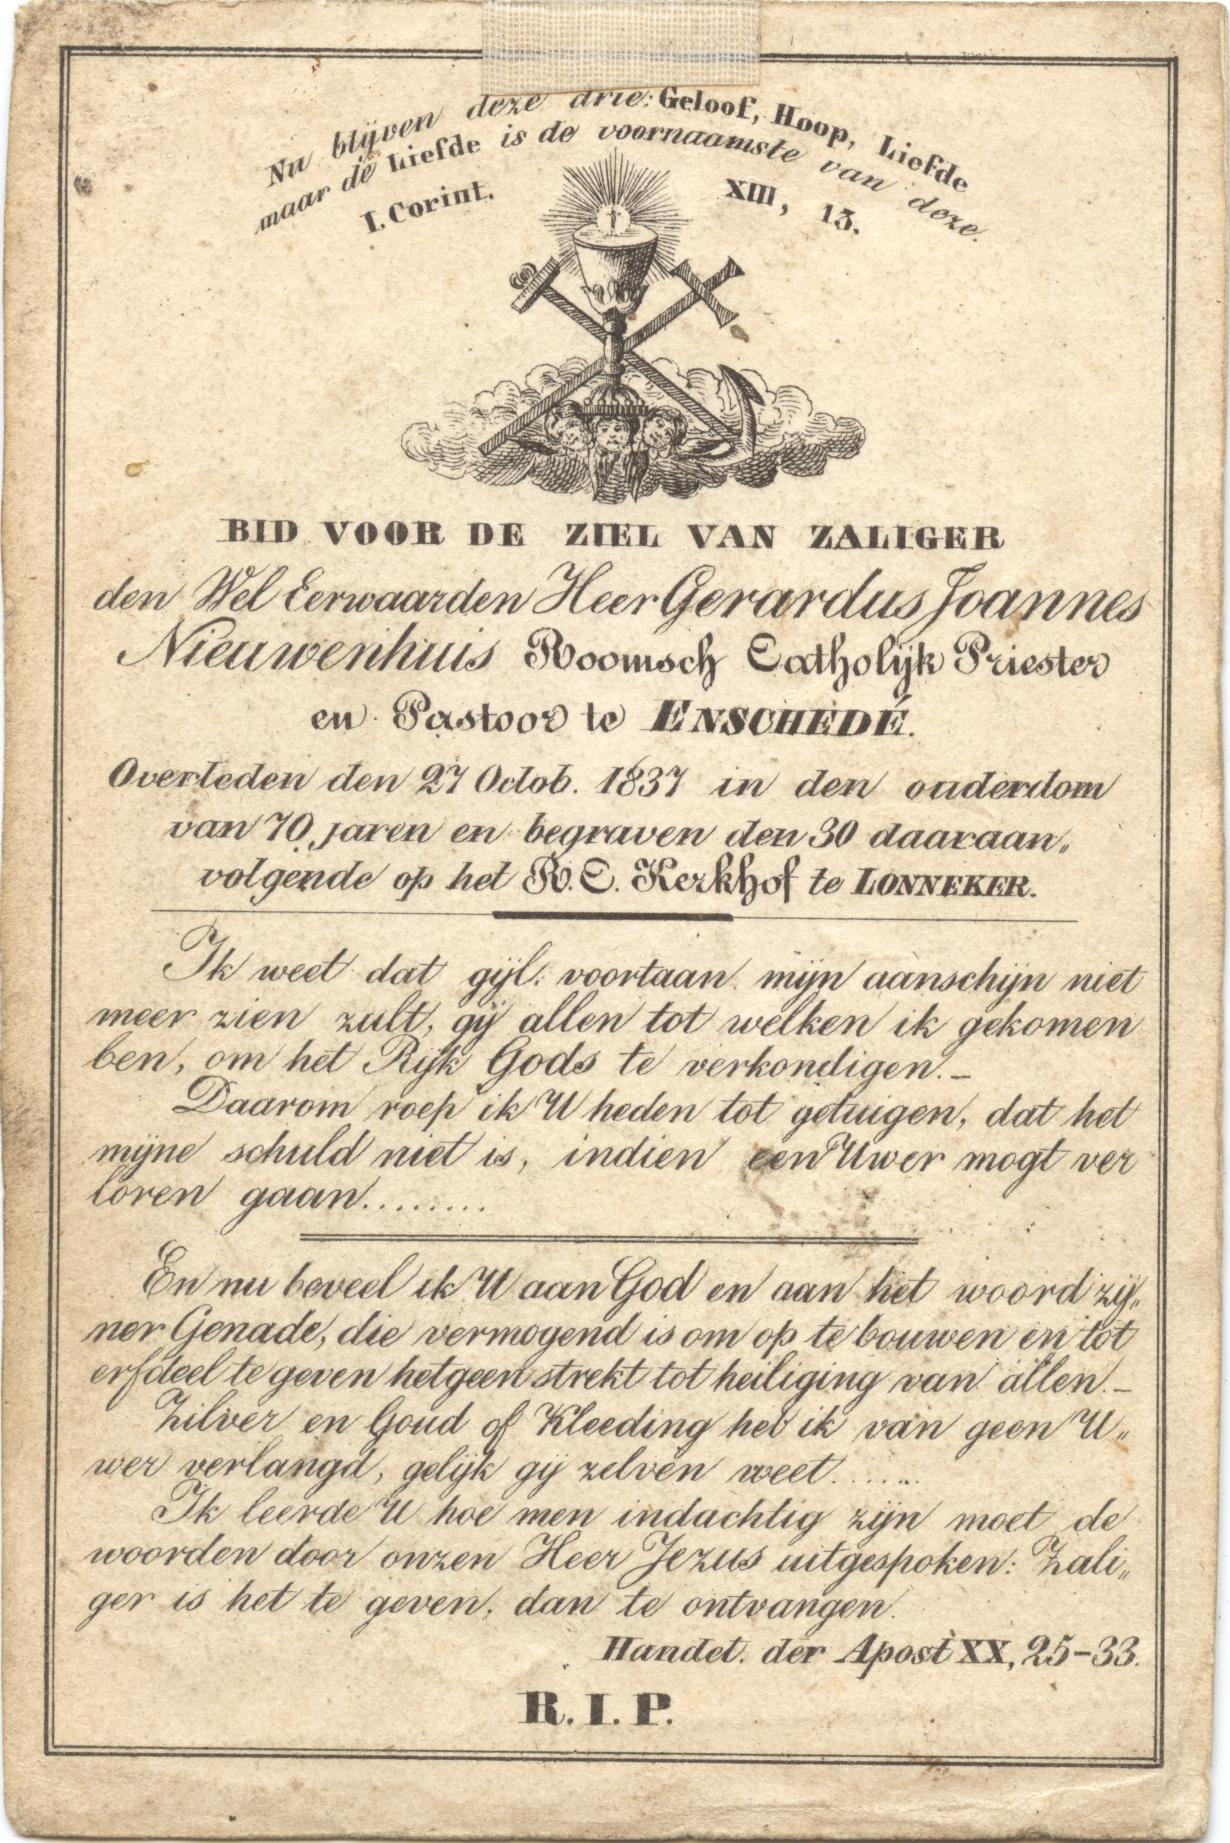 Nu blijven deze drie: Geloof, Hoop, Liefde
maar de Liefde is de voornaamste van deze.
I. Corint. XIII, 13.
BID VOOR DE ZIEL VAN ZALIGER
den Wel Eerwaarden Heer Gerardus Joannes
Nieuwenhuis Roomsch Catholijk Priester
en Pastoor te ENSCHEDÉ.
Overleden den 27 Octob. 1837 in den ouderdom
van 70 jaren en begraven den 30 daaraan„
volgende op het R. C. Kerkhof te LONNEKER.
Ik weet dat gijl: voortaan mijn aanschijn niet
meer zien zult, gij allen tot welken ik gekomen
ben, om het Rijk Gods te verkondigen.—
Daarom roep ik U heden tot getuigen, dat het
mijne schuld niet is, indien een Uwer mogt ver
loren gaan.........
En nu beveel ik U aan God en aan het woord zij„
ner Genade, die vermogend is om op te bouwen en tot
erfdeel te geven hetgeen strekt tot heiliging van allen.—
Zilver en Goud of Kleeding heb ik van geen U„
wer verlangd, gelijk gij zelven weet......
Ik leerde U hoe men indachtig zijn moet de
woorden door onzen Heer Jezus uitgespoken: Zali„
ger is het te geven, dan te ontvangen.
Handel. der Apost XX, 25–33.
R. I. P.